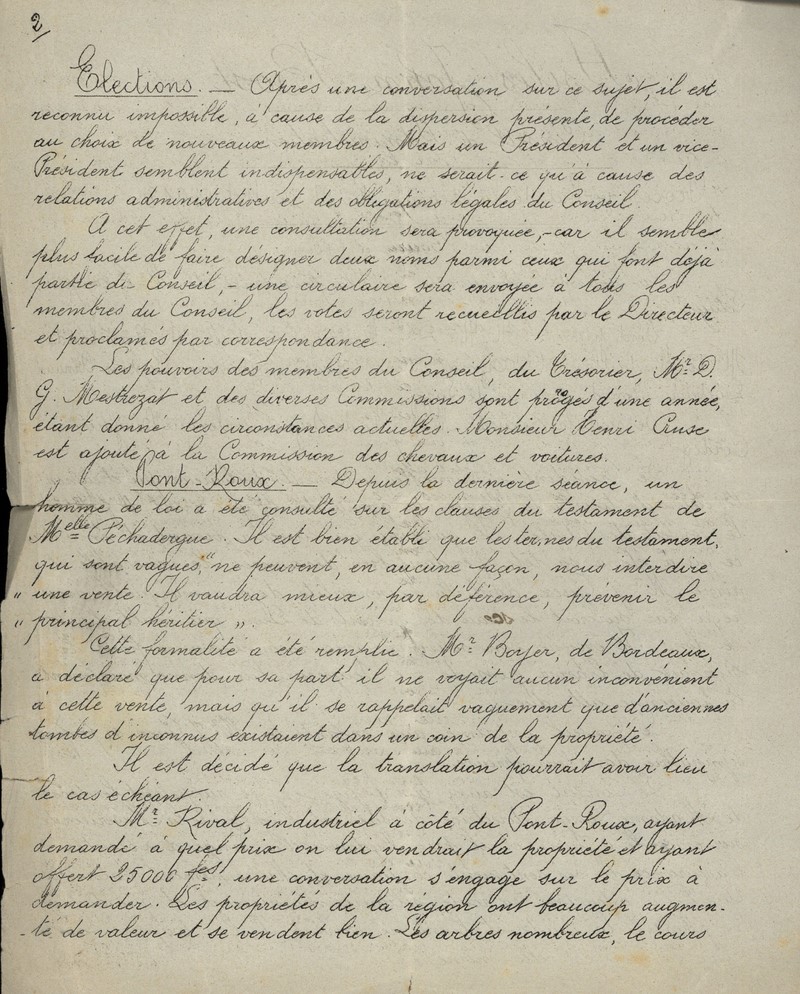 2/
Elections. — Après une conversation sur ce sujet, il est
reconnu impossible, à cause de la dispersion présente, de procéder
au choix de nouveaux membres. Mais un Président et un vice-
Président semblent indispensables, ne serait-ce qu'à cause des
relations administratives et des obligations légales du Conseil.
A cet effet, une consultation sera provoquée, - car il semble
plus facile de faire désigner deux noms parmi ceux qui font déjà
partie du Conseil, - une circulaire sera envoyée à tous les
membres du Conseil, les votes seront recueillis par le Directeur
et proclamés par correspondance.
Les pouvoirs des membres du Conseil, du Trésorier, Mr. D.
G. Mestrezat et des diverses Commissions sont prorogés d'une année,
étant donné les circonstances actuelles. Monsieur Henri Cruse
est ajouté à la Commission des chevaux et voitures.
Pont-Roux. — Depuis la dernière séance, un
homme de loi a été consulté sur les clauses du testament de
Melle Péchadergue. Il est bien établi que les termes du testament,
qui sont vagues, "ne peuvent, en aucune façon, nous interdire
" une vente. Il vaudra mieux, par déférence, prévenir le
" principal héritier ".
Cette formalité a été remplie. Mr. Boyer, de Bordeaux,
a déclaré que pour sa part il ne voyait aucun inconvénient
à cette vente, mais qu'il se rappelait vaguement que d'anciennes
tombes d'inconnus existaient dans un coin de la propriété.
Il est décidé que la translation pourrait avoir lieu
le cas échéant.
Mr. Rival, industriel à côté du Pont-Roux, ayant
demandé à quel prix on lui vendrait la propriété et ayant
offert 25000 fcs, une conversation s'engage sur le prix à
demander. Les propriétés de la région ont beaucoup augmen-
-té de valeur et se vendent bien. Les arbres nombreux, le cours